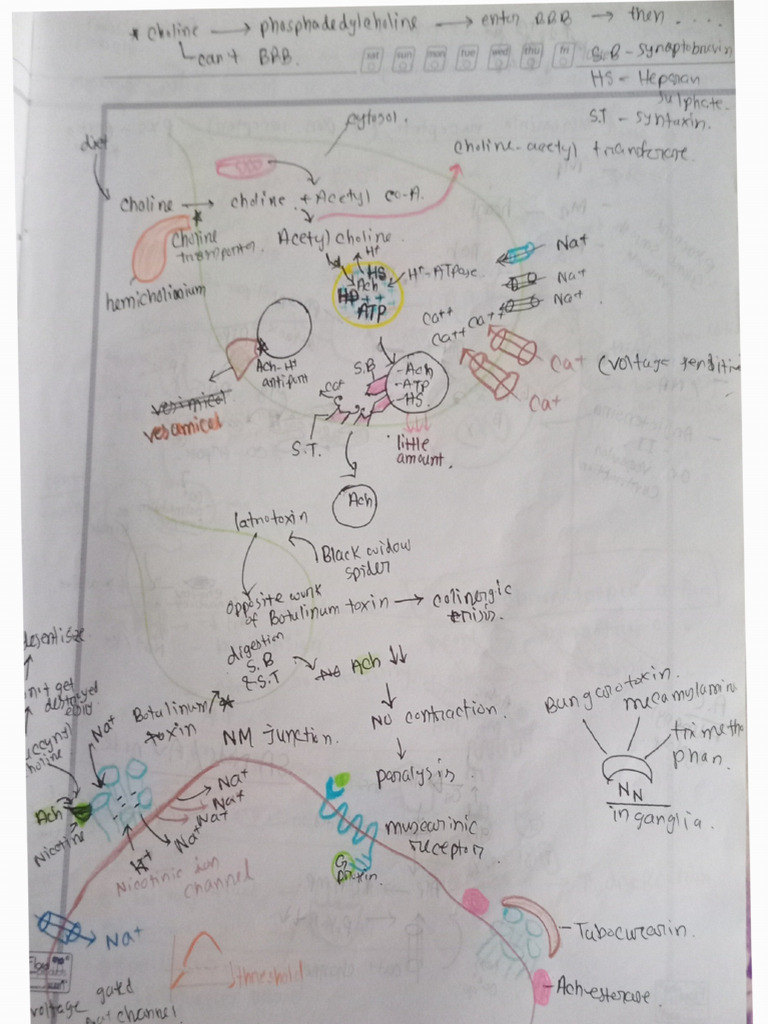 * choline → phosphadedylcholine → enter BBB → then ....
can't BBB.
sat sun mon tue wed thu fri
S.B - synaptobrevin
HS - Heparan
sulphate.
S.T - syntaxin.
cytosol.
diet
choline-acetyl transferase.
choline → choline + Acetyl co-A.
*
choline
transporter.
Acetyl choline.
hemicholinium
H+
HS
Ach
++
ATP
H+-ATPase.
Na+
Na+
Na+
Ca++
Ca++
Ca++
Ca+ (voltage senditive
Ca+
Ach-H+
antiport
vesimicel
vesamicel
S.B
Ca+
-Ach
-ATP
-HS.
S.T.
little
amount.
Ach
latnotoxin
Black widow
spider
opposite wunk
of Botulinum toxin → colinergic
crisis.
digestion
S.B
& S.T
No Ach ↓↓
NO contraction.
paralysis
desentise
not get
destroyed
easily
succynyl
choline
Na+
Botulinum
toxin
*
NM junction.
Ach
Nicotine
Na+
Na+
Na+
Na+
K+
Nicotinic ion
channel
muscarinic
receptor.
G
protein
Bungarotoxin.
mecamylamine
trimetho
phan.
NN
in ganglia.
Na+
voltage gated
Na+ channel
threshold
-Tubocurarin.
-Ach-esterase.